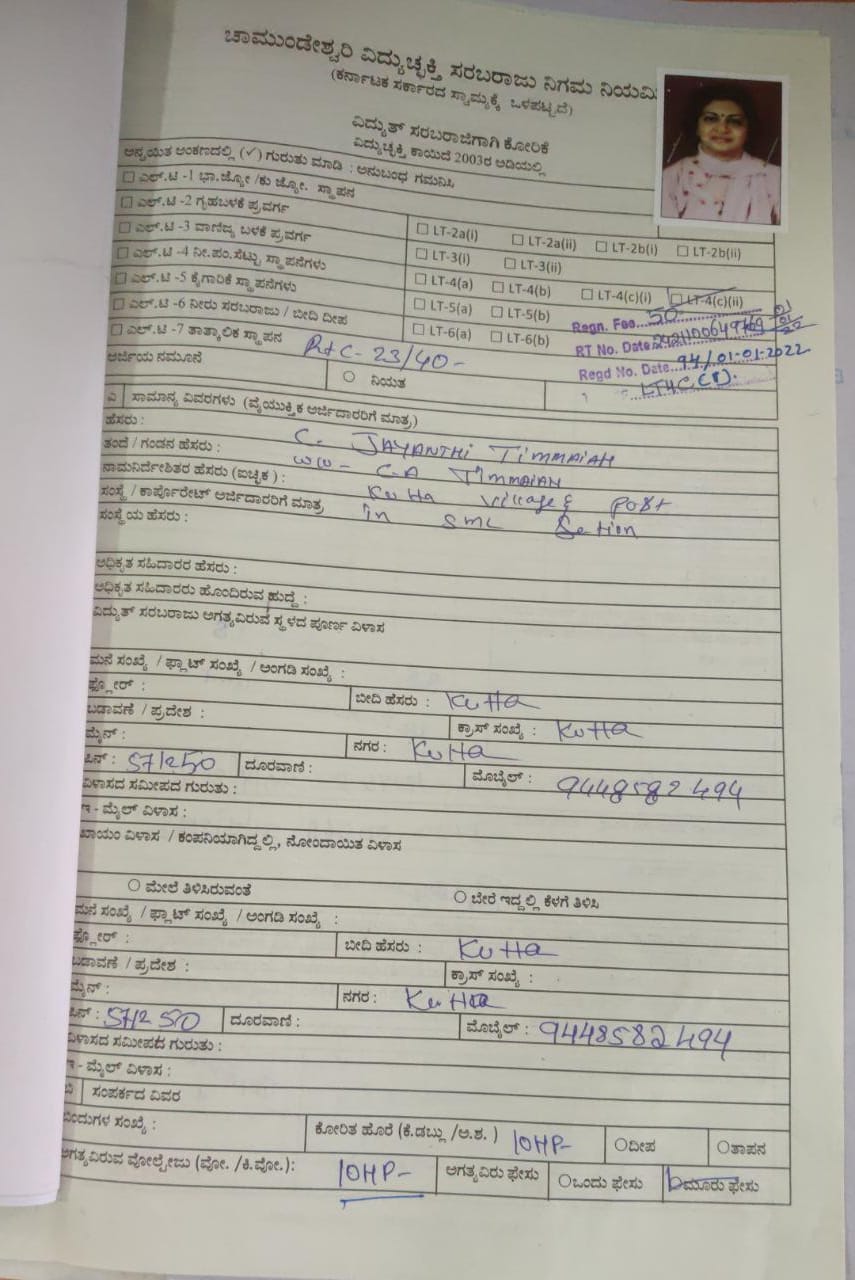 ಚಾಮುಂಡೇಶ್ವರಿ ವಿದ್ಯುಚ್ಛಕ್ತಿ ಸರಬರಾಜು ನಿಗಮ ನಿಯಮಿ
(ಕರ್ನಾಟಕ ಸರ್ಕಾರದ ಸ್ವಾಮ್ಯಕ್ಕೆ ಒಳಪಟ್ಟಿದೆ)
ವಿದ್ಯುತ್ ಸರಬರಾಜಿಗಾಗಿ ಕೋರಿಕೆ
ವಿದ್ಯುಚ್ಛಕ್ತಿ ಕಾಯಿದೆ 2003ರ ಅಡಿಯಲ್ಲಿ
ಅನ್ವಯಿತ ಅಂಕಣದಲ್ಲಿ (✓) ಗುರುತು ಮಾಡಿ : ಅನುಬಂಧ ಗಮನಿಸಿ
☐ ಎಲ್.ಟಿ -1 ಭಾ.ಜ್ಯೋ /ಕು ಜ್ಯೋ. ಸ್ಥಾಪನ
☐ ಎಲ್.ಟಿ -2 ಗೃಹಬಳಕೆ ಪ್ರವರ್ಗ ☐ LT-2a(i) ☐ LT-2a(ii) ☐ LT-2b(i) ☐ LT-2b(ii)
☐ ಎಲ್.ಟಿ -3 ವಾಣಿಜ್ಯ ಬಳಕೆ ಪ್ರವರ್ಗ ☐ LT-3(i) ☐ LT-3(ii)
☐ ಎಲ್.ಟಿ -4 ನೀ.ಪಂ.ಸೆಟ್ಟು ಸ್ಥಾಪನೆಗಳು ☐ LT-4(a) ☐ LT-4(b) ☐ LT-4(c)(i) ☐ LT-4(c)(ii)
☐ ಎಲ್.ಟಿ -5 ಕೈಗಾರಿಕೆ ಸ್ಥಾಪನೆಗಳು ☐ LT-5(a) ☐ LT-5(b)
☐ ಎಲ್.ಟಿ -6 ನೀರು ಸರಬರಾಜು / ಬೀದಿ ದೀಪ ☐ LT-6(a) ☐ LT-6(b)
☐ ಎಲ್.ಟಿ -7 ತಾತ್ಕಾಲಿಕ ಸ್ಥಾಪನ
Regn. Fee...50
RT No. Date
Regd No. Date...94/01-01-2022
ಅರ್ಜಿಯ ನಮೂನೆ
23/40-
○ ನಿಯತ
ಎ ಸಾಮಾನ್ಯ ವಿವರಗಳು (ವೈಯುಕ್ತಿಕ ಅರ್ಜಿದಾರರಿಗೆ ಮಾತ್ರ)
ಹೆಸರು : C. JAYANTHI TIMMAIAH
ತಂದೆ / ಗಂಡನ ಹೆಸರು : w/o - C.A TIMMAIAH
ನಾಮನಿರ್ದೇಶಿತರ ಹೆಸರು (ಐಚ್ಛಿಕ) : KuTTa Village & post
ಸಂಸ್ಥೆ / ಕಾರ್ಪೊರೇಟ್ ಅರ್ಜಿದಾರರಿಗೆ ಮಾತ್ರ in SML Setion
ಸಂಸ್ಥೆಯ ಹೆಸರು :
ಅಧಿಕೃತ ಸಹಿದಾರರ ಹೆಸರು :
ಅಧಿಕೃತ ಸಹಿದಾರರು ಹೊಂದಿರುವ ಹುದ್ದೆ :
ವಿದ್ಯುತ್ ಸರಬರಾಜು ಅಗತ್ಯವಿರುವ ಸ್ಥಳದ ಪೂರ್ಣ ವಿಳಾಸ
ಮನೆ ಸಂಖ್ಯೆ / ಫ್ಲಾಟ್ ಸಂಖ್ಯೆ / ಅಂಗಡಿ ಸಂಖ್ಯೆ :
ಫ್ಲೋರ್ : ಬೀದಿ ಹೆಸರು : KuTTa
ಬಡಾವಣೆ / ಪ್ರದೇಶ : ಕ್ರಾಸ್ ಸಂಖ್ಯೆ : KuTTa
ಮೈನ್ : ನಗರ : KuTTa
ಪಿನ್ : 571250 ದೂರವಾಣಿ : ಮೊಬೈಲ್ : 9448582494
ವಿಳಾಸದ ಸಮೀಪದ ಗುರುತು :
ಇ - ಮೈಲ್ ವಿಳಾಸ :
ಖಾಯಂ ವಿಳಾಸ / ಕಂಪನಿಯಾಗಿದ್ದಲ್ಲಿ, ನೋಂದಾಯಿತ ವಿಳಾಸ
○ ಮೇಲೆ ತಿಳಿಸಿರುವಂತೆ ○ ಬೇರೆ ಇದ್ದಲ್ಲಿ ಕೆಳಗೆ ತಿಳಿಸಿ
ಮನೆ ಸಂಖ್ಯೆ / ಫ್ಲಾಟ್ ಸಂಖ್ಯೆ / ಅಂಗಡಿ ಸಂಖ್ಯೆ :
ಫ್ಲೋರ್ : ಬೀದಿ ಹೆಸರು : KuTTa
ಬಡಾವಣೆ / ಪ್ರದೇಶ : ಕ್ರಾಸ್ ಸಂಖ್ಯೆ :
ಮೈನ್ : ನಗರ : KuTTa
ಪಿನ್ : 571250 ದೂರವಾಣಿ : ಮೊಬೈಲ್ : 9448582494
ವಿಳಾಸದ ಸಮೀಪದ ಗುರುತು :
ಇ - ಮೈಲ್ ವಿಳಾಸ :
ಬಿ ಸಂಪರ್ಕದ ವಿವರ
ಬಿಂದುಗಳ ಸಂಖ್ಯೆ : ಕೋರಿತ ಹೊರೆ (ಕೆ.ಡಬ್ಲು /ಅ.ಶ. ) 10HP- ○ದೀಪ ○ತಾಪನ
ಅಗತ್ಯವಿರುವ ವೋಲ್ಟೇಜು (ವೋ. /ಕಿ.ವೋ.): 10HP- ಅಗತ್ಯವಿರು ಫೇಸು ○ಒಂದು ಫೇಸು ○ಮೂರು ಫೇಸು